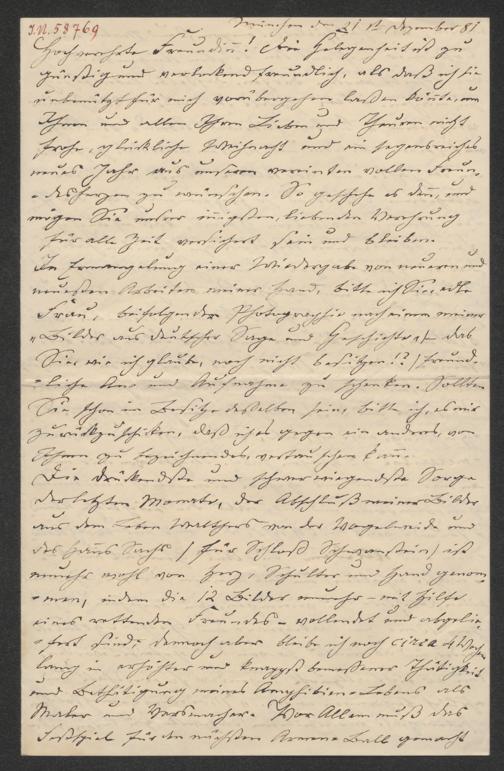 I.N. 58769
München den 21 st Dezember 81
Hochverehrte Freundin! Die Gelegenheit ist zu
günstig und verlockend freundlich, als daß ich sie
unbenützt für mich vorübergehen lassen könnte, um
Ihnen und allen Ihren Lieben und Theuren recht
frohe, glückliche Weihnacht und ein segensreiches
neues Jahr aus unseren vereinten vollen Freun-
desherzen zu wünschen. So geschehe es denn, und
mögen Sie unsrer innigsten, liebenden Verehrung
für alle Zeit versichert sein und bleiben.
In Ermangelung einer Wiedergabe von neueren und
neuesten Arbeiten meiner Hand, bitte ich Sie, edle
Frau, beifolgender Photographie nach einem meiner
"Bilder aus deutscher Sage und Geschichte" /: das
Sie, wie ich glaube, noch nicht besitzen!? / freund-
liche An- und Aufnahme zu schenken. Sollten
Sie schon im Besitze desselben sein, bitte ich, es mir
zurückzuschicken, daß ich es gegen ein anderes, von
Ihnen zu bezeichnendes, vertauschen kann.
Die drückendste und schwerwiegendste Sorge
der letzten Monate, der Abschluß meiner Bilder
aus dem Leben Walthers von der Vogelweide und
des Hans Sachs / für Schloß Schwanstein / ist
nunmehr wohl von Herz, Schulter und Hand genom-
men, indem die 12 Bilder nunmehr - mit Hilfe
eines rettenden Freundes - vollendet und abgelie-
fert sind; dennoch aber bleibe ich noch circa 4 Wochen
lang in erhöhter und knappst bemessener Thätigkeit
und Bethätigung meines Amphibien-Lebens als
Maler und Versmacher. Vor Allem muß das
Festspiel für den nächsten Armen-Ball gemacht